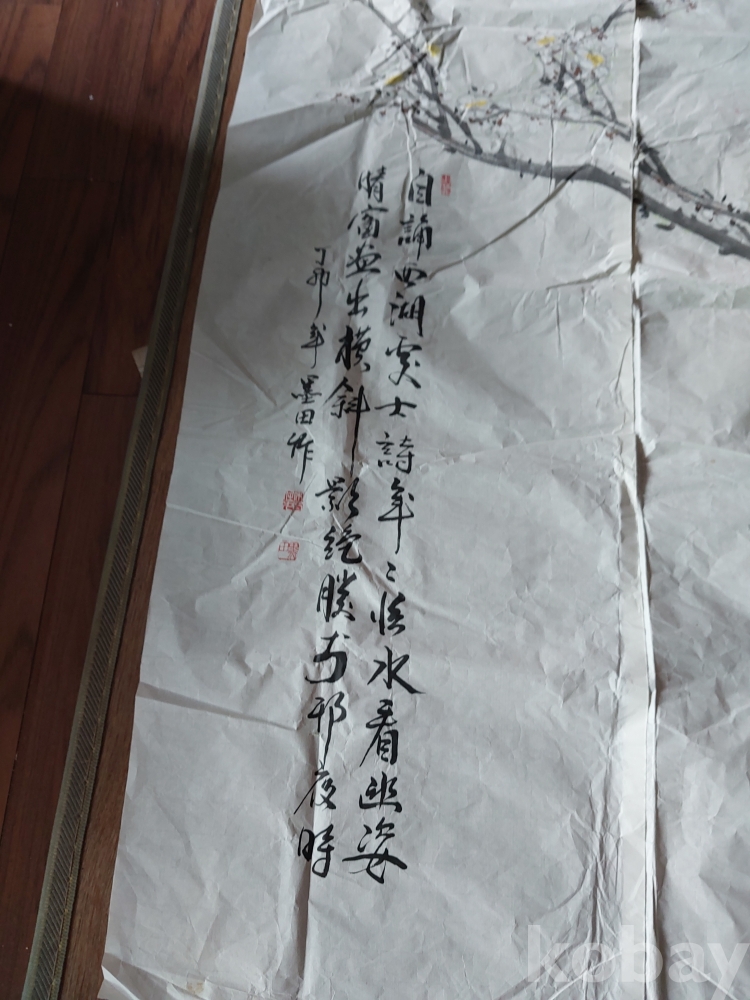 自誦西湖處士詩年〻臨水看幽姿
晴窗畫出橫斜影絕勝前邨夜時
丁卯年墨田作
kobay